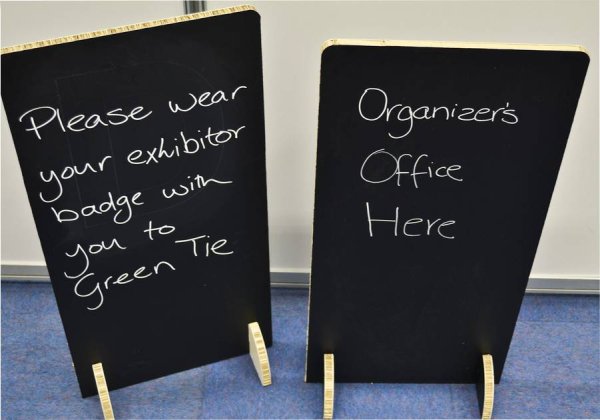 Please wear
your exhibitor
badge with
you to
Green Tie
Organizer's
Office
Here